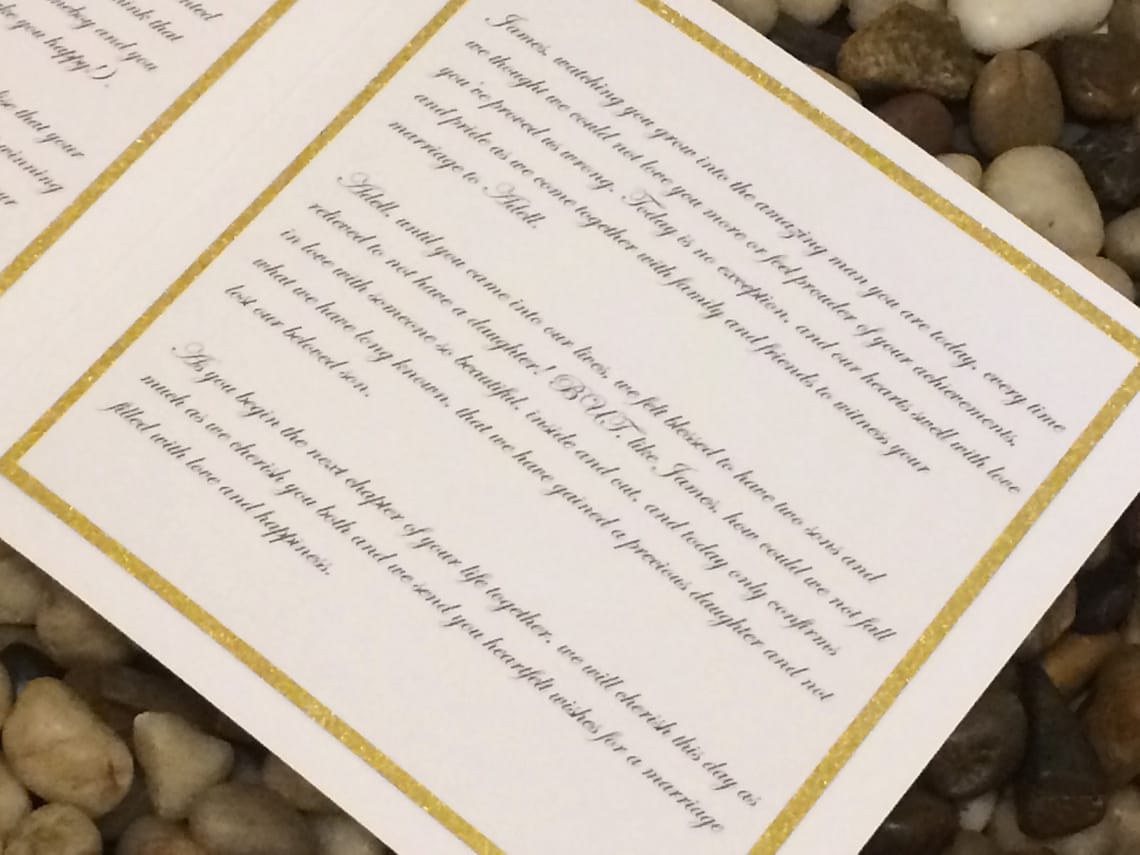 nted
think that
and you
ke you happy!)
ise that your
winning
ur
James, watching you grow into the amazing man you are today, every time
we thought we could not love you more or feel prouder of your achievements,
you've proved us wrong. Today is no exception, and our hearts swell with love
and pride as we come together with family and friends to witness your
marriage to Adell.
Adell, until you came into our lives, we felt blessed to have two sons and
relieved to not have a daughter! BUT, like James, how could we not fall
in love with someone so beautiful, inside and out, and today only confirms
what we have long known, that we have gained a precious daughter and not
lost our beloved son.
As you begin the next chapter of your life together, we will cherish this day as
much as we cherish you both and we send you heartfelt wishes for a marriage
filled with love and happiness.